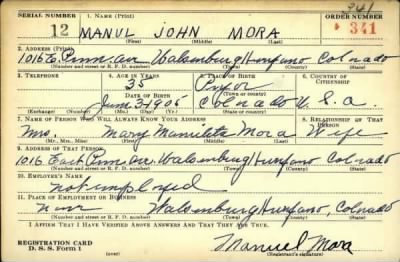 SERIAL NUMBER 1. NAME (Print) 341 ORDER NUMBER
12 MANUL JOHN MORA 341
(First) (Middle) (Last)
2. ADDRESS (Print)
1016 E. Penn. ave Walsenburg Huerfano Colorado
(Number and street or R. F. D. number) (Town) (County) (State)
3. TELEPHONE 4. AGE IN YEARS 5. PLACE OF BIRTH 6. COUNTRY OF CITIZENSHIP
35 Pryor
DATE OF BIRTH (Town or county)
June 3-1905 Colorado U. S. a.
(Exchange) (Number) (Mo.) (Day) (Yr.) (State or country)
7. NAME OF PERSON WHO WILL ALWAYS KNOW YOUR ADDRESS 8. RELATIONSHIP OF THAT PERSON
Mrs. Mary Manuleta Mora Wife
(Mr., Mrs., Miss) (First) (Middle) (Last)
9. ADDRESS OF THAT PERSON
1016 East Penn ave. Walsenburg Huerfano Colorado
(Number and street or R. F. D. number) (Town) (County) (State)
10. EMPLOYER'S NAME
not employed
11. PLACE OF EMPLOYMENT OR BUSINESS
Walsenburg Huerfano, Colorado
(Number and street or R. F. D. number) (Town) (County) (State)
I AFFIRM THAT I HAVE VERIFIED ABOVE ANSWERS AND THAT THEY ARE TRUE.
REGISTRATION CARD
D. S. S. Form 1
Manuel Mora
(Registrant's signature)